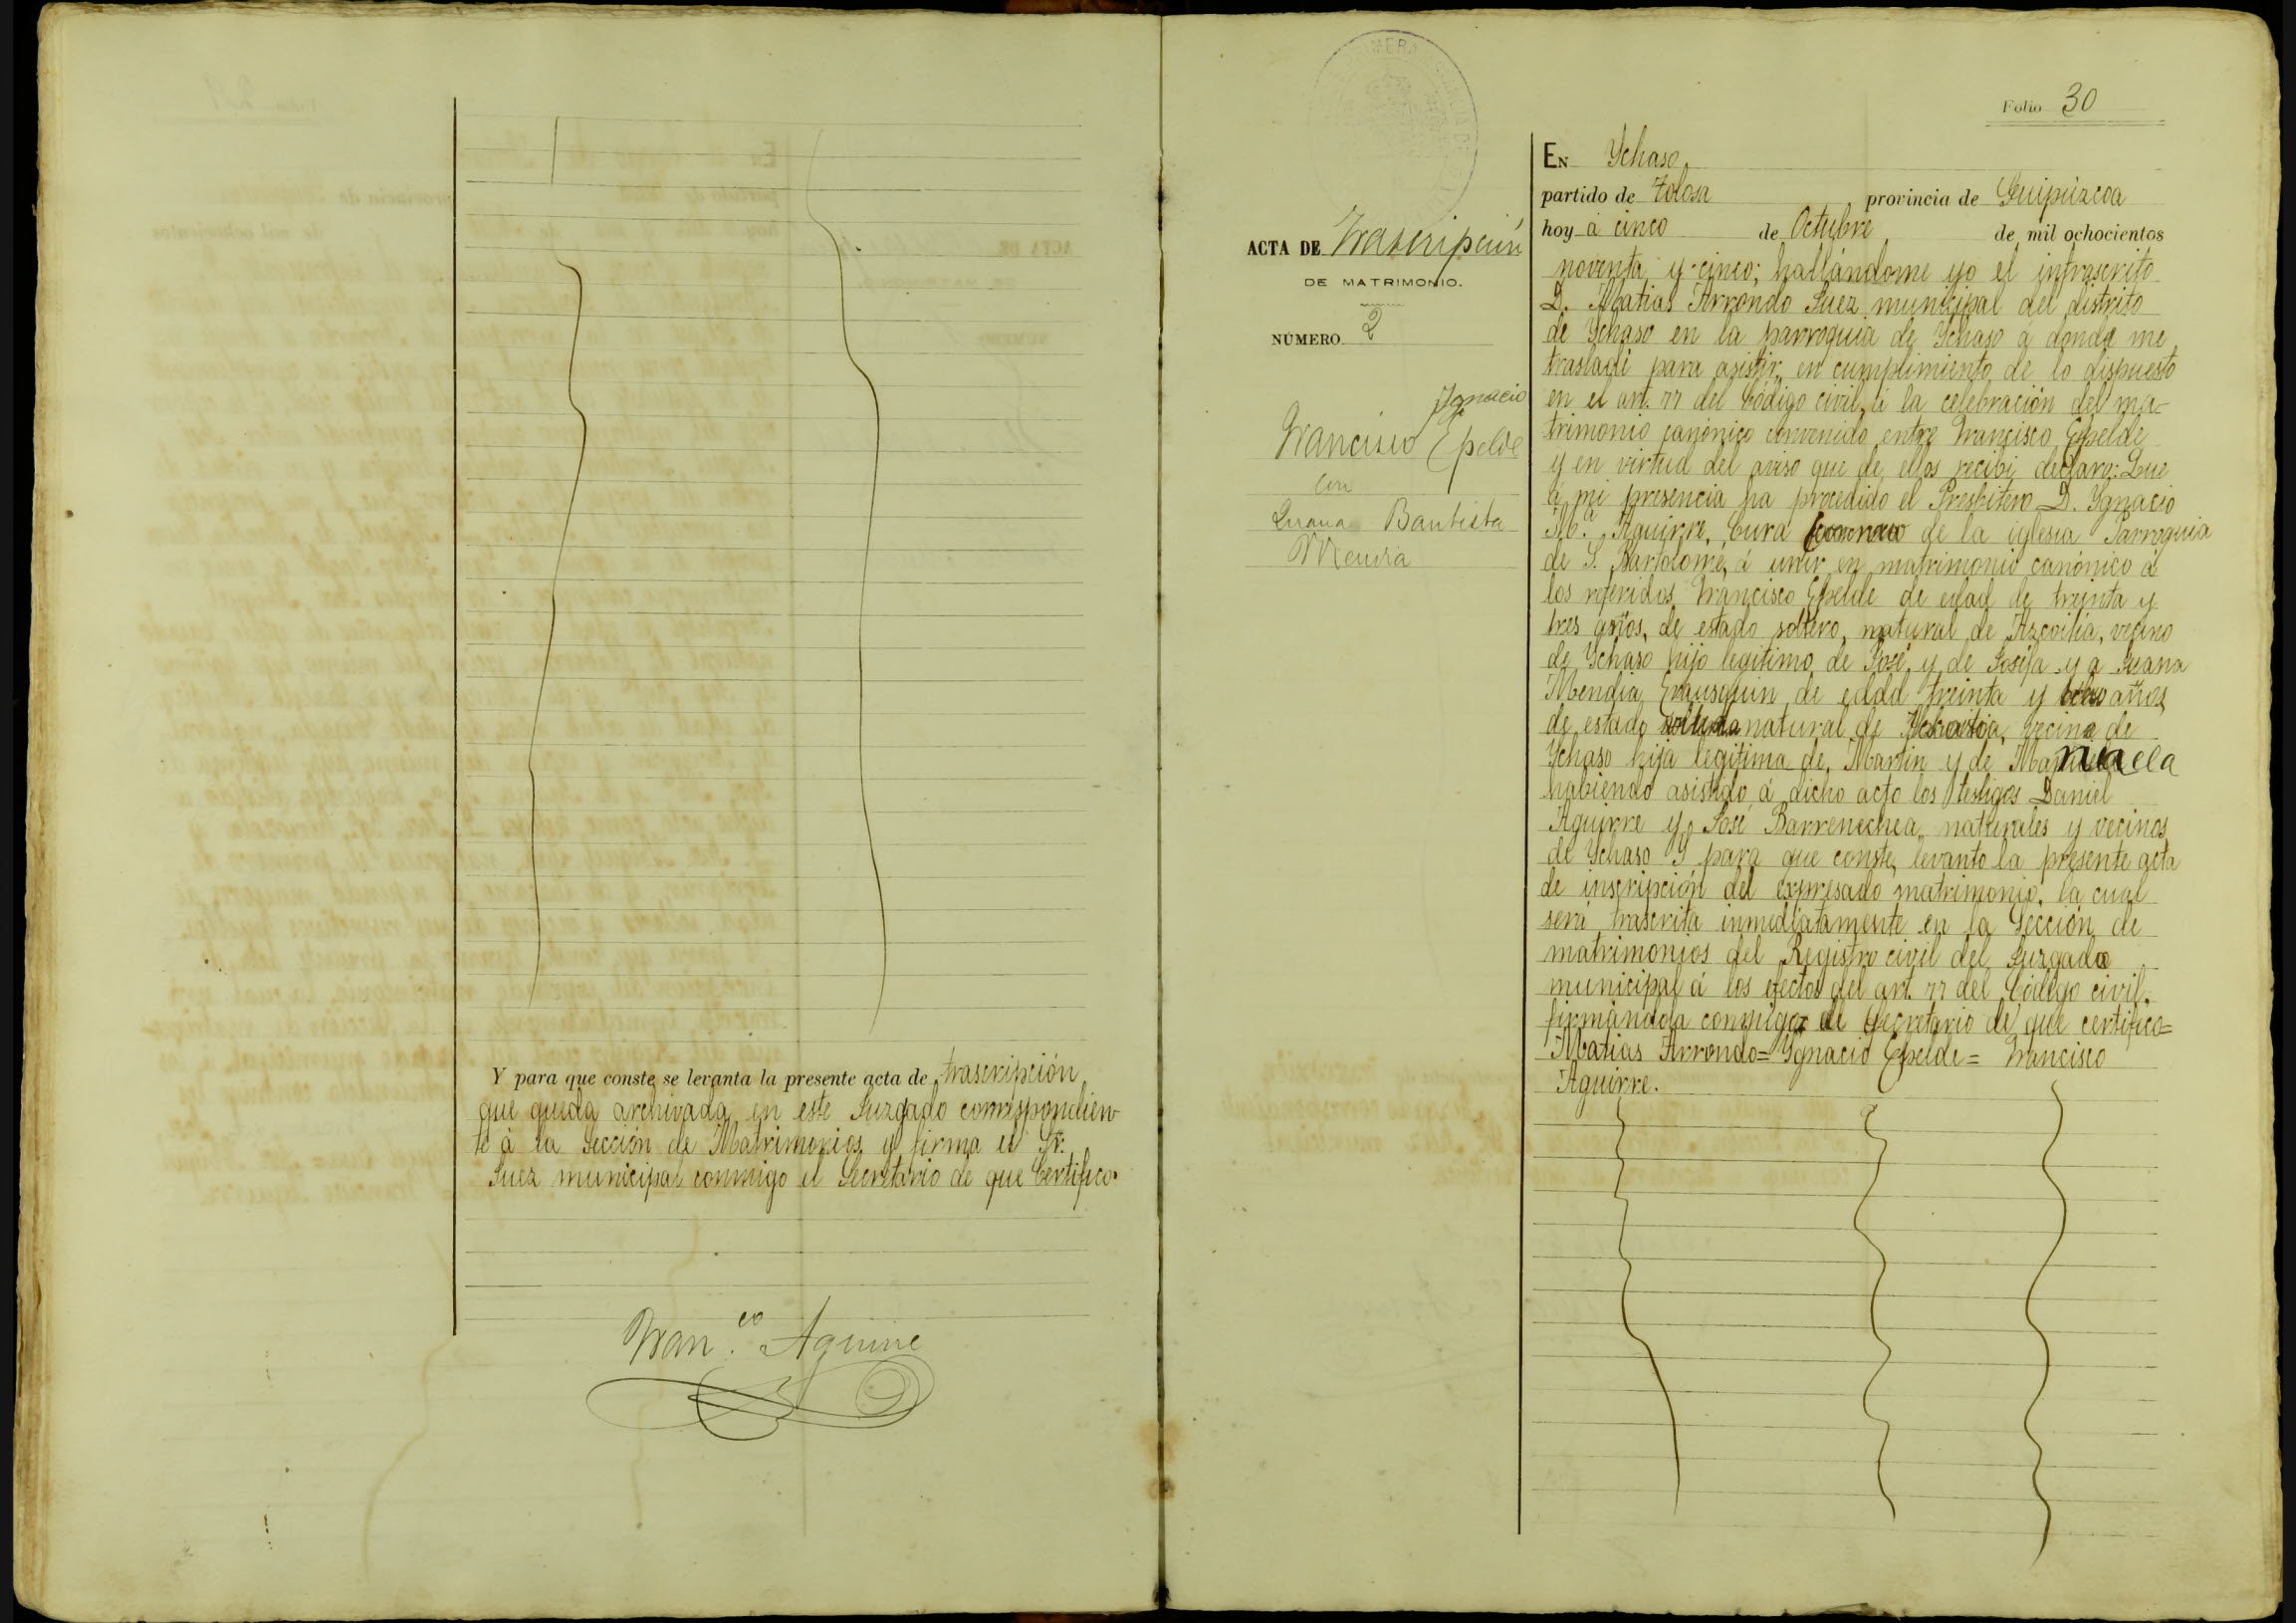 Y para que conste se levanta la presente acta de trascripción
que queda archivada en este Juzgado correspondien-
te á la Sección de Matrimonios y firma el Sr.
Juez municipal conmigo el Secretario de que Certifico.
Fran.co Aguirre
Folio 30
ACTA DE Trascripción
DE MATRIMONIO.
NÚMERO 2
Ignacio
Francisco Epelde
con
Juana Bautista
Mendia
EN Ychaso,
partido de Tolosa provincia de Guipúzcoa
hoy á cinco de Octubre de mil ochocientos
noventa y cinco; hallándome yo el infrascrito
D. Matias Arrondo Juez municipal del distrito
de Ychaso en la parroquia de Ychaso á donde me
trasladé para asistir, en cumplimiento de lo dispuesto
en el art. 77 del Código civil, á la celebración del ma-
trimonio canónico convenido entre Francisco Epelde
y en virtud del aviso que de ellos recibi, declaro: Que
á mi presencia ha procedido el Presbitero D. Ygnacio
M.a Aguirre, Cura de la iglesia Parroquia
de S. Bartolomé, á unir en matrimonio canónico á
los referidos Francisco Epelde de edad de treinta y
tres años, de estado soltero, natural de Azcoitia, vecino
de Ychaso hijo legitimo de José y de Josefa y a Juana
Mendia Erausquin de edad treinta y años
de estado soltera natural de vecina de
Ychaso hija legitima de Martin y de Manuela
habiendo asistido á dicho acto los testigos Daniel
Aguirre y José Barrenechea naturales y vecinos
de Ychaso Y para que conste, levanto la presente acta
de inscripción del expresado matrimonio, la cual
será trascrita inmediatamente en la Sección de
matrimonios del Registro civil del Juzgado
municipal á los efectos del art. 77 del Código civil,
firmandola conmigo el Secretario de que certifico=
Matias Arrondo= Ygnacio Epelde= Francisco
Aguirre.